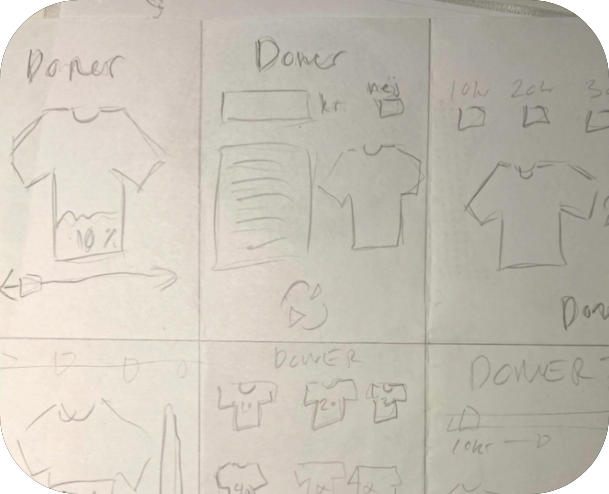 Doner
10 %
Doner
kr.
nei
10kr 20kr
Don
DONER
1.
2.
DONER
10kr